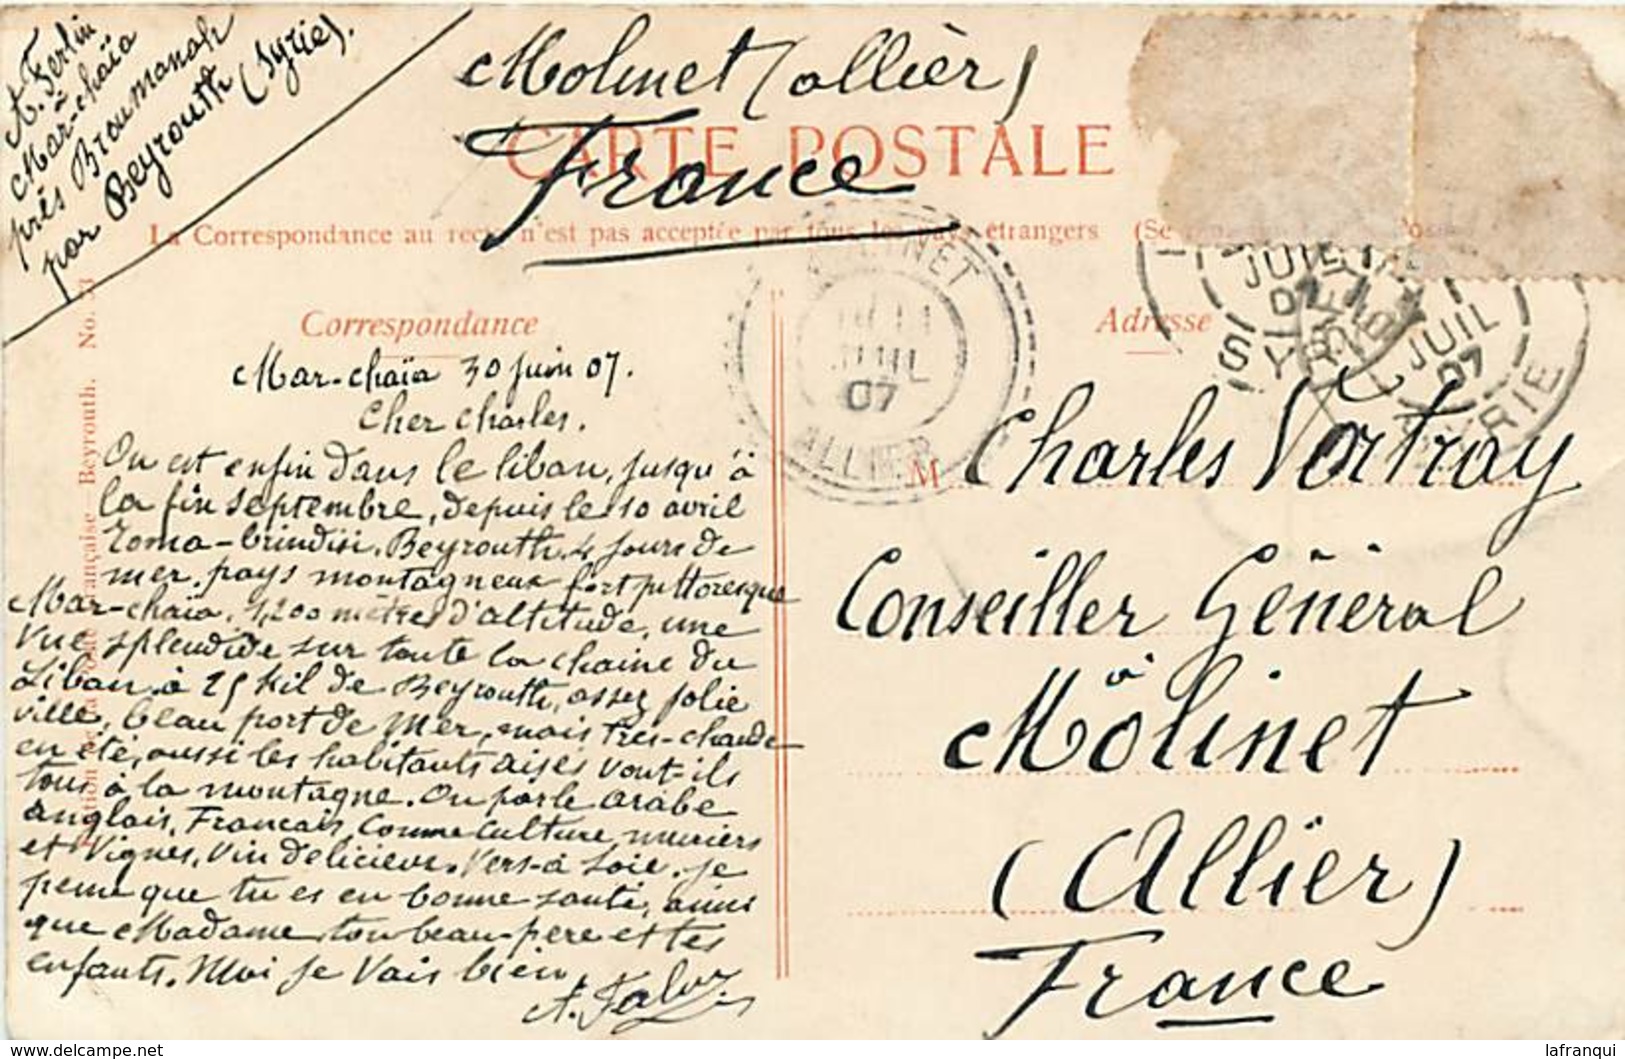 A. Ferlin
à
Mar-chaïa
près Broumanah
par Beyrouth (Syrie).
Molinet (allièr)
France
CARTE POSTALE
La Correspondance au recto n'est pas acceptée par tous les pays étrangers (Se
Correspondance
Adresse
MOLINET
JUIL
07
ALLIER
JUIL
07
SYRIE
JUIL
07
SYRIE
Mar-chaïa 30 juin 07.
Cher Charles.
On est enfin dans le liban, jusqu'à
la fin septembre, depuis le 10 avril
Roma-brindisi. Beyrouth. 4 jours de
mer. pays montagneux fort pittoresque
Mar-chaïa. 1,200 mètres d'altitude, une
vue splendide sur toute la chaine du
Liban à 25 kil de Beyrouth, assez jolie
ville, beau port de mer, mais très-chaude
en été, aussi les habitants aisés vont-ils
tous à la montagne. On parle arabe
anglais, Francais, comme culture, muriers
et vignes, vin delicieux. vers-à soie. je
pense que tu es en bonne santé, ainsi
que Madame, ton beau-père et tes
enfants. Moi je vais bien
M. Charles Vortray
Conseiller Général
à
Molinet
(Allier)
France
Française - Beyrouth. No.
delcampe.net
lafranqui